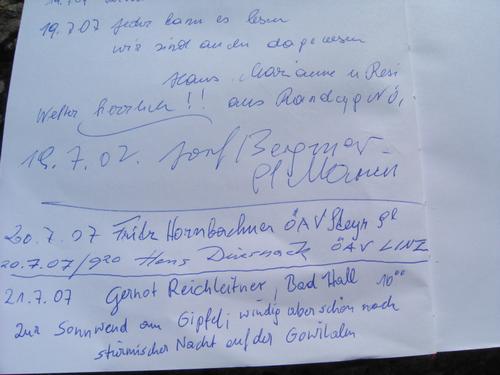 19.7.07 Jeder kann es lesen
wir sind auch dagewesen
Hans, Marianne u Resi
Wetter herrlich!! aus NÖ,
19.7.07. Josf
20.7.07 Fritz Hornbachner ÖAV Steyr
20.7.07/920 Hans ÖAV LINZ
21.7.07 Gernot Reichleitner, Bad Hall 10⁰⁰
zur Sonnwend am Gipfel; windig aber schön nach
stürmischer Nacht auf der Gowilalm